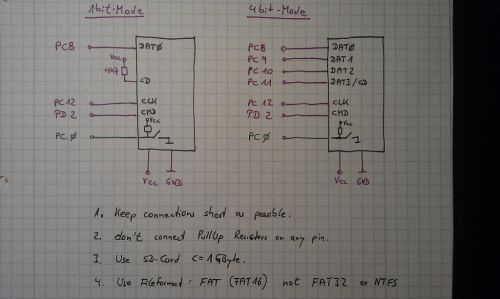 1bit-Mode
4bit-Mode
PC8 DAT0
Vcc
CD
PC12 CLK
PD2 CMD
Vcc
PC0
Vcc GND
PC8 DAT0
PC9 DAT1
PC10 DAT2
PC11 DAT3/CD
PC12 CLK
PD2 CMD
Vcc
PC0
Vcc GND
1. Keep connections short as possible.
2. don't connect PullUp Resistors on any pin.
3. Use SD-Card <= 1GByte.
4. Use Fileformat: FAT (FAT16) not FAT32 or NTFS